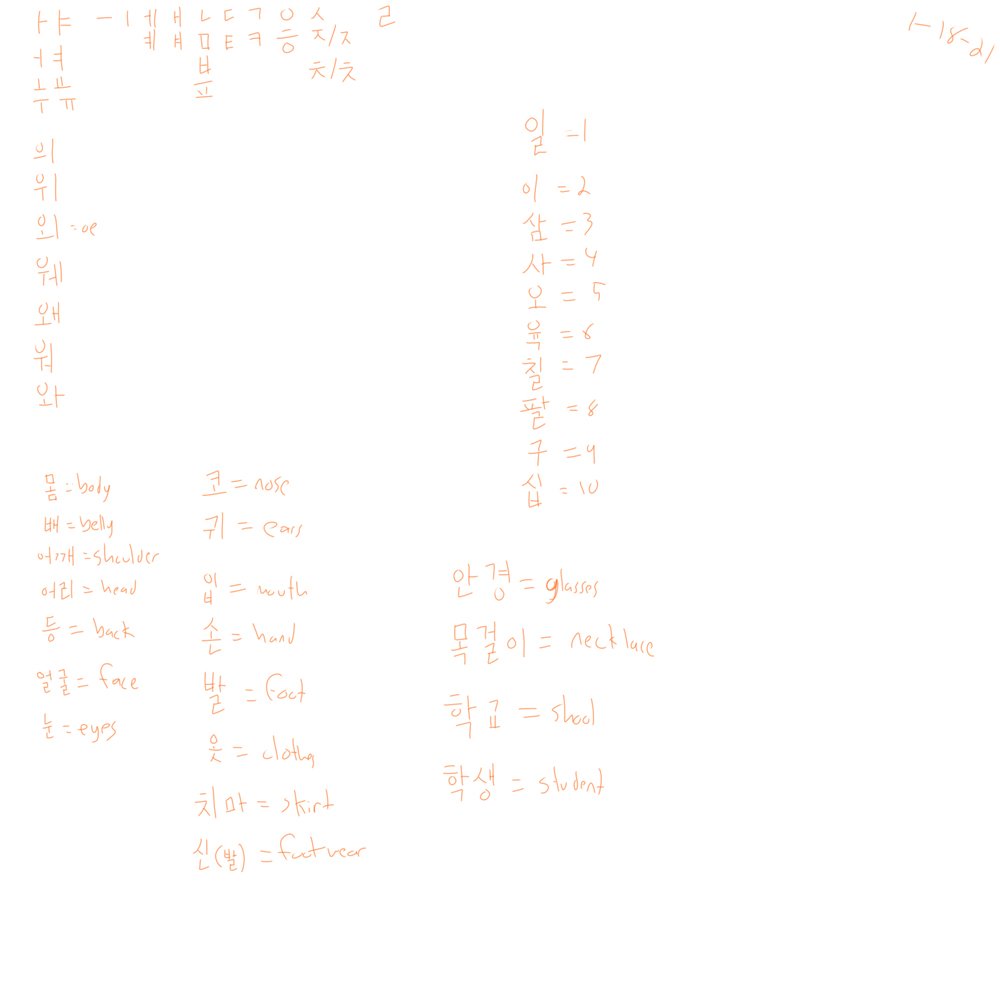 ㅏㅑ ㅡㅣㅔㅐㄴㄷㄱㅇㅅ ㄹ
ㅖㅒㅁㅌㅋㅎㅈ/ㅈ
ㅓㅕ ㅂ ㅊ/ㅊ
ㅗㅛ ㅍ
ㅜㅠ
1-18-21
의
위
외 = oe
웨
왜
워
와
일 =1
이 =2
삼 =3
사 =4
오 = 5
육 =6
칠 =7
팔 =8
구 =9
십 =10
몸=body
배=belly
어깨=shoulder
어리=head
등=back
얼굴=face
눈=eyes
코=nose
귀=ears
입=mouth
손=hand
발=foot
옷=
치마=skirt
신(발)=footwear
안경=glasses
목걸이=necklace
학교=shool
학생=student